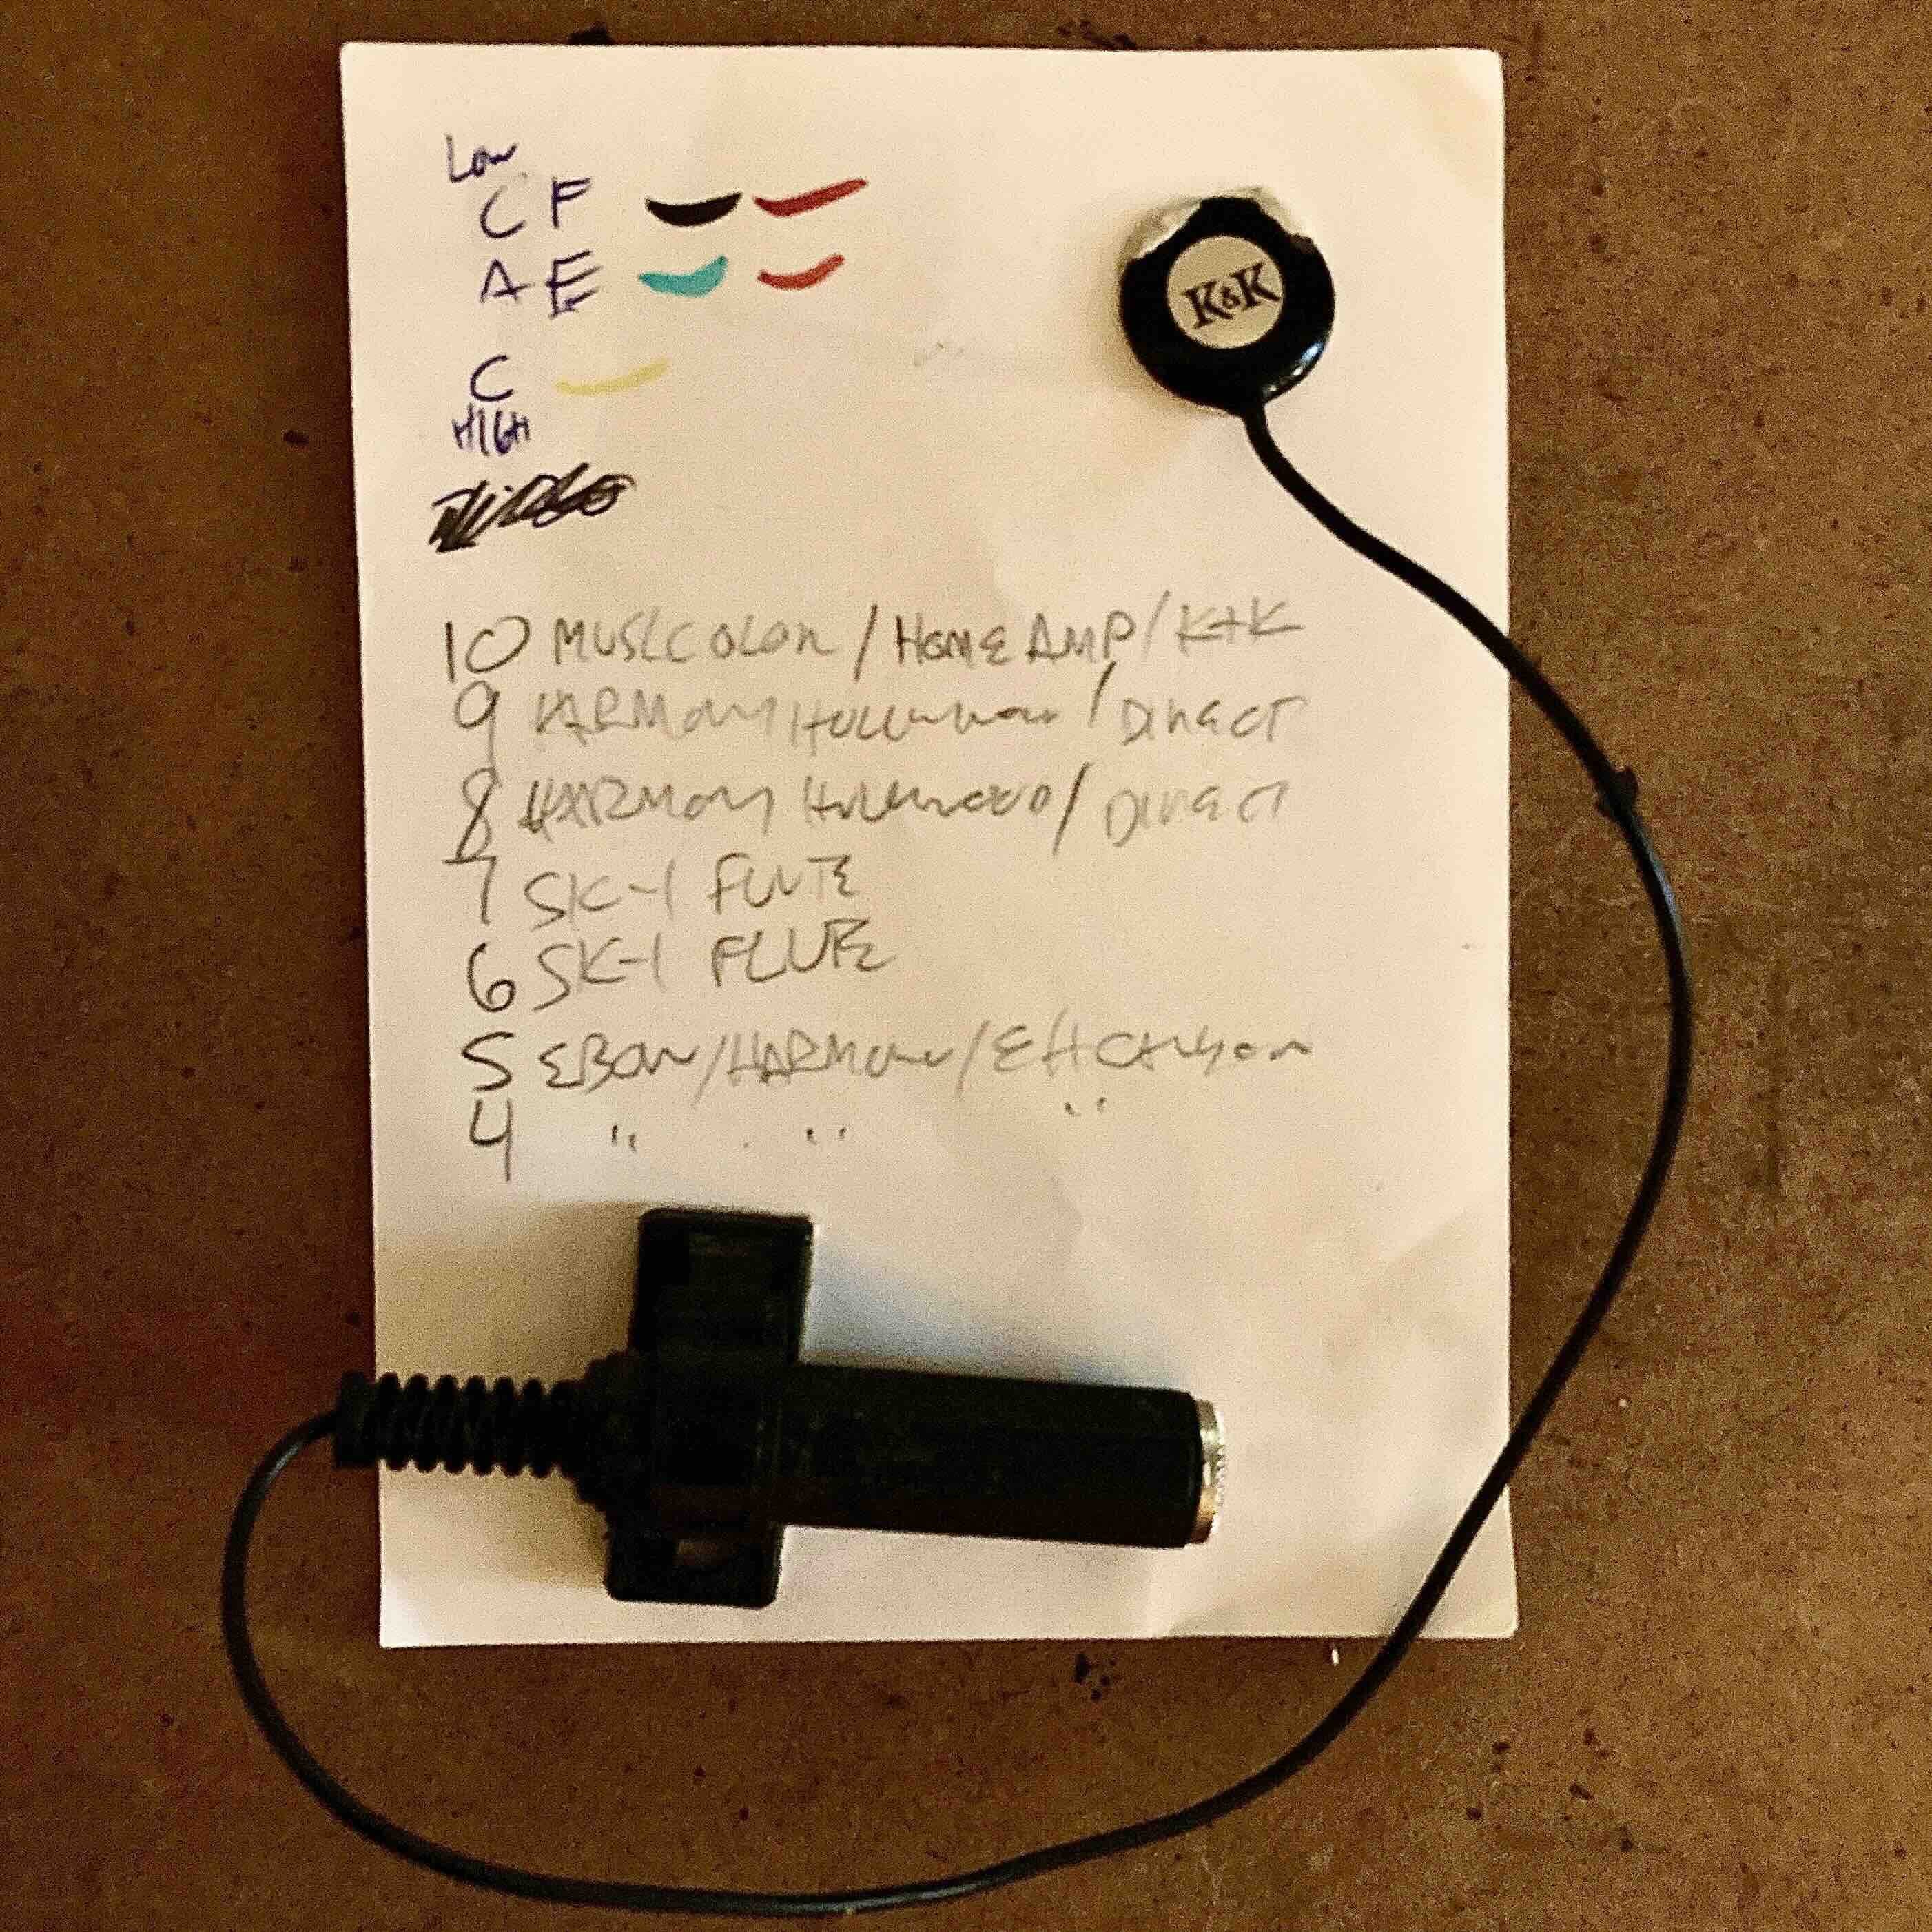 Low
C F
A E
C
HIGH
K&K
10 MUSICOLOR / HOME AMP / K+K
9 HARMONY HOLLYWOOD / DIRECT
8 HARMONY HOLLYWOOD / DIRECT
7 SK-1 FLUTE
6 SK-1 FLUTE
5 EBOW / HARMONY / EH CANYON
4 " " "